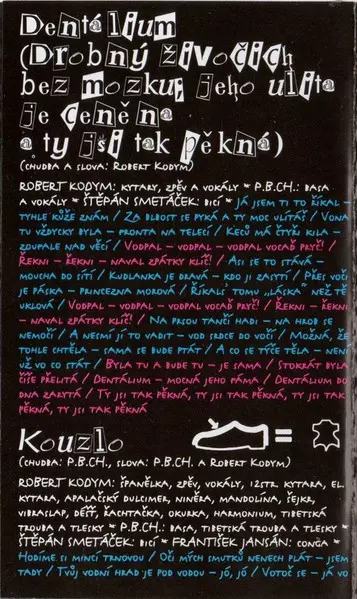 Dentálium
(Drobný živočich
bez mozku; jeho ulita
je ceněna
a ty jsi tak pěkná)
(CHUDBA A SLOVA: ROBERT KODYM)
ROBERT KODYM: KYTARY, ZPĚV A VOKÁLY * P.B.CH.: BASA
A VOKÁLY * ŠTĚPÁN SMETÁČEK: BICÍ * JÁ JSEM TI TO ŘÍKAL –
TYHLE KŮŽE ZNÁM / ZA BLBOST SE PYKÁ A TY MOC ULÍTÁŠ / VONA
TU VŽDYCKY BYLA – PRONTA NA TELECÍ / KECŮ MÁ ČTYŘI KILA –
ZOUPALE NAD VĚCÍ / VODPAL – VODPAL – VODPAL VOCAĎ PRYČ! /
ŘEKNI – ŘEKNI – NAVAL ZPÁTKY KLÍČ! / ASI SE TO STÁVÁ –
MOUCHA DO SÍTÍ / KUDLANKA JE DRAVÁ – KDO JI ZASYTÍ / PŘES VOČI
JE PÁSKA – PRINCEZNA MOROVÁ / ŘÍKALS' TOMU „LÁSKA" NEŽ TĚ
UKLOVÁ / VODPAL – VODPAL – VODPAL VOCAĎ PRYČ! / ŘEKNI – ŘEKNI –
– NAVAL ZPÁTKY KLÍČ! / NA PRSOU TANČÍ HADI – NA HROB SE
NEMOČÍ / A NESMÍ JÍ TO VADIT – VOD SRDCE DO VOČÍ / MOŽNÁ, ŽE
TOHLE CHTĚLA – SAMA SE BUDE PTÁT / A CO SE TÝČE TĚLA – NENÍ
UŽ VO CO STÁT / BYLA TU A BUDE TU – JE SAMA / STOKRÁT BYLA
ČÍŠE PŘELITÁ / DENTÁLIUM – MOCNÁ JEHO PÁMA / DENTÁLIUM DO
DNA ZARYTÁ / TY JSI TAK PĚKNÁ, TY JSI TAK PĚKNÁ, TY JSI TAK
PĚKNÁ, TY JSI TAK PĚKNÁ
Kouzlo
=
(CHUDBA: P.B.CH., SLOVA: P.B.CH. A ROBERT KODYM)
ROBERT KODYM: ŠPANĚLKA, ZPĚV, VOKÁLY, 12STR. KYTARA, EL.
KYTARY, APALAČSKÝ DULCIMER, NINĚRA, MANDOLÍNA, ŠEJKR,
VIBRASLAP, DÉŠŤ, KACHTAČKA, OKURKA, HARMONIUM, TIBETSKÁ
TROUBA A TLESKY * P.B.CH.: BASA, TIBETSKÁ TROUBA A TLESKY *
ŠTĚPÁN SMETÁČEK: BICÍ * FRANTIŠEK JANSÁN: CONGA *
HODÍME SI MINCÍ TRNOVOU / OČI MÝCH SMUTKŮ NENECH PLÁT – JSEM
TADY / TVŮJ VODNÍ HRAD JE POD VODOU – JÓ, JÓ / VOTOČ SE – JÁ VO